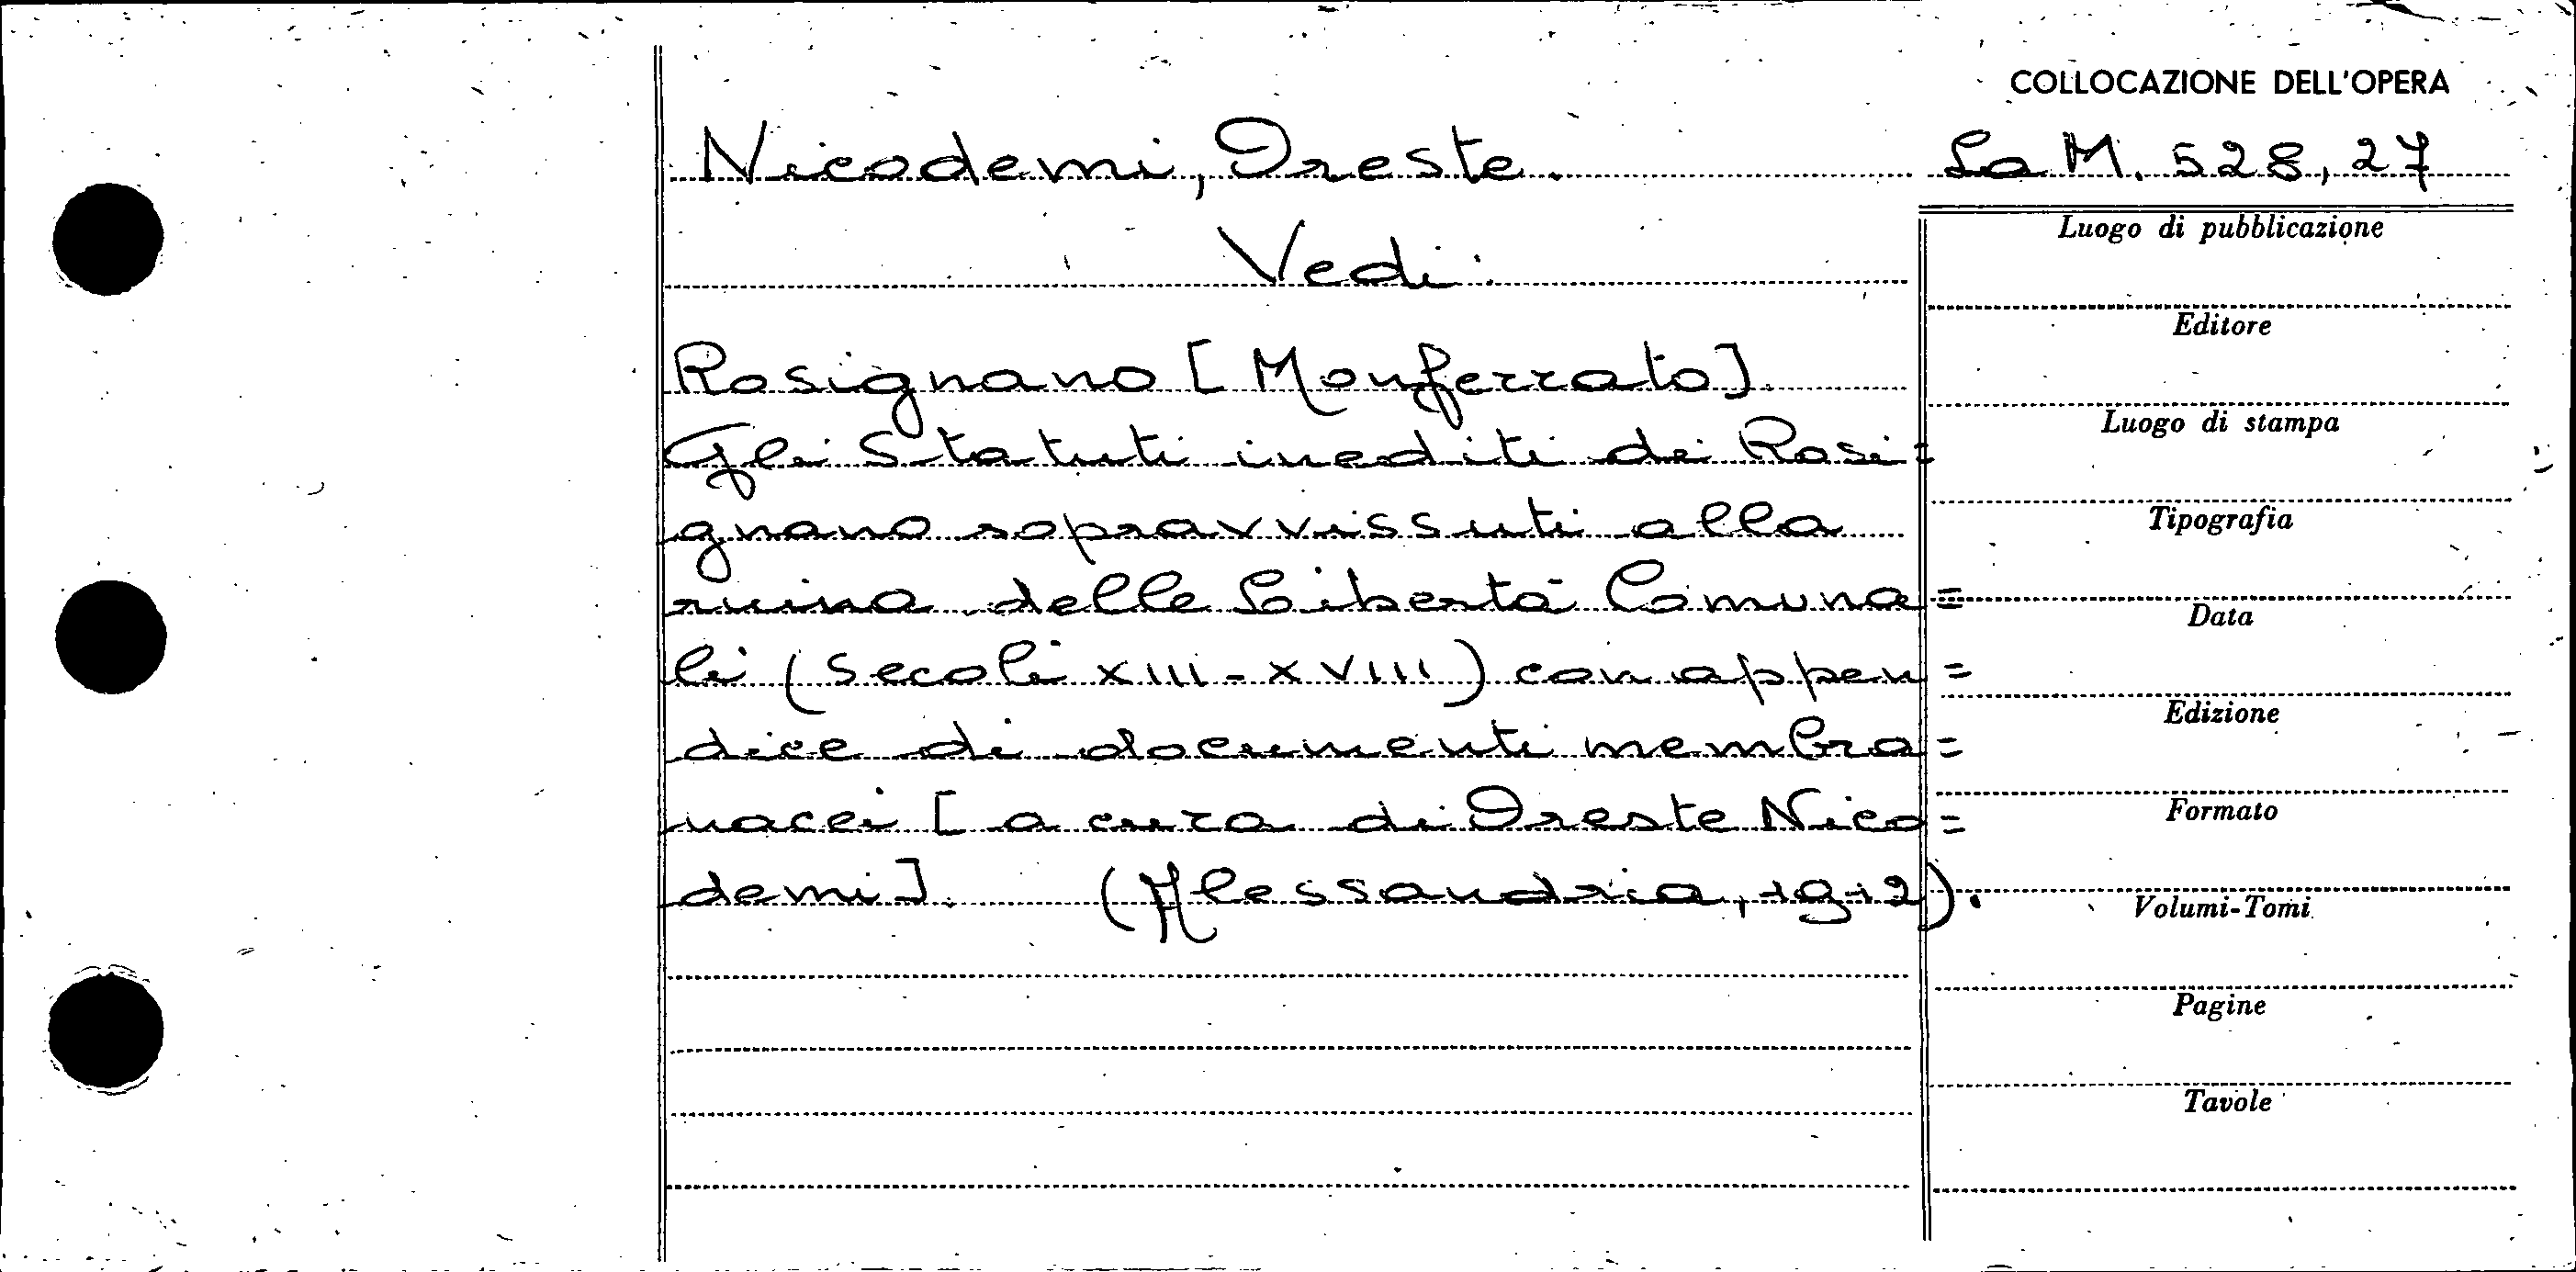 COLLOCAZIONE DELL'OPERA
Nicodemi, Oreste. La M. 528, 27
Vedi:
Rosignano [Monferrato]
Gli Statuti inediti di Rosi=
gnano sopravvissuti alla
ruina delle Libertà Comuna=
li (Secoli XIII-XVIII) con appen=
dice di documenti membra=
nacei [a cura di Oreste Nico=
demi]. (Alessandria, 1912).
Luogo di pubblicazione
Editore
Luogo di stampa
Tipografia
Data
Edizione
Formato
Volumi-Tomi
Pagine
Tavole